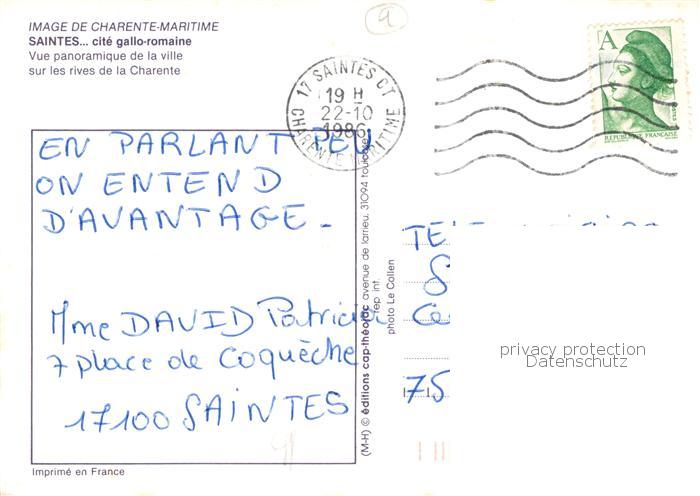 IMAGE DE CHARENTE-MARITIME
SAINTES... cité gallo-romaine
Vue panoramique de la ville
sur les rives de la Charente
a
17 SAINTES CT
19 H
22-10
1986
CHARENTE MARITIME
A
REPUBLIQUE FRANÇAISE
EN PARLANT PEU
ON ENTEND
D'AVANTAGE -
Mme DAVID Patricia
7 place de Coquèche
17100 SAINTES
(M-H) © éditions cap-théojac avenue de larrieu. 31094 toulouse
rep int.
photo Le Collen
75
privacy protection
Datenschutz
Imprimé en France